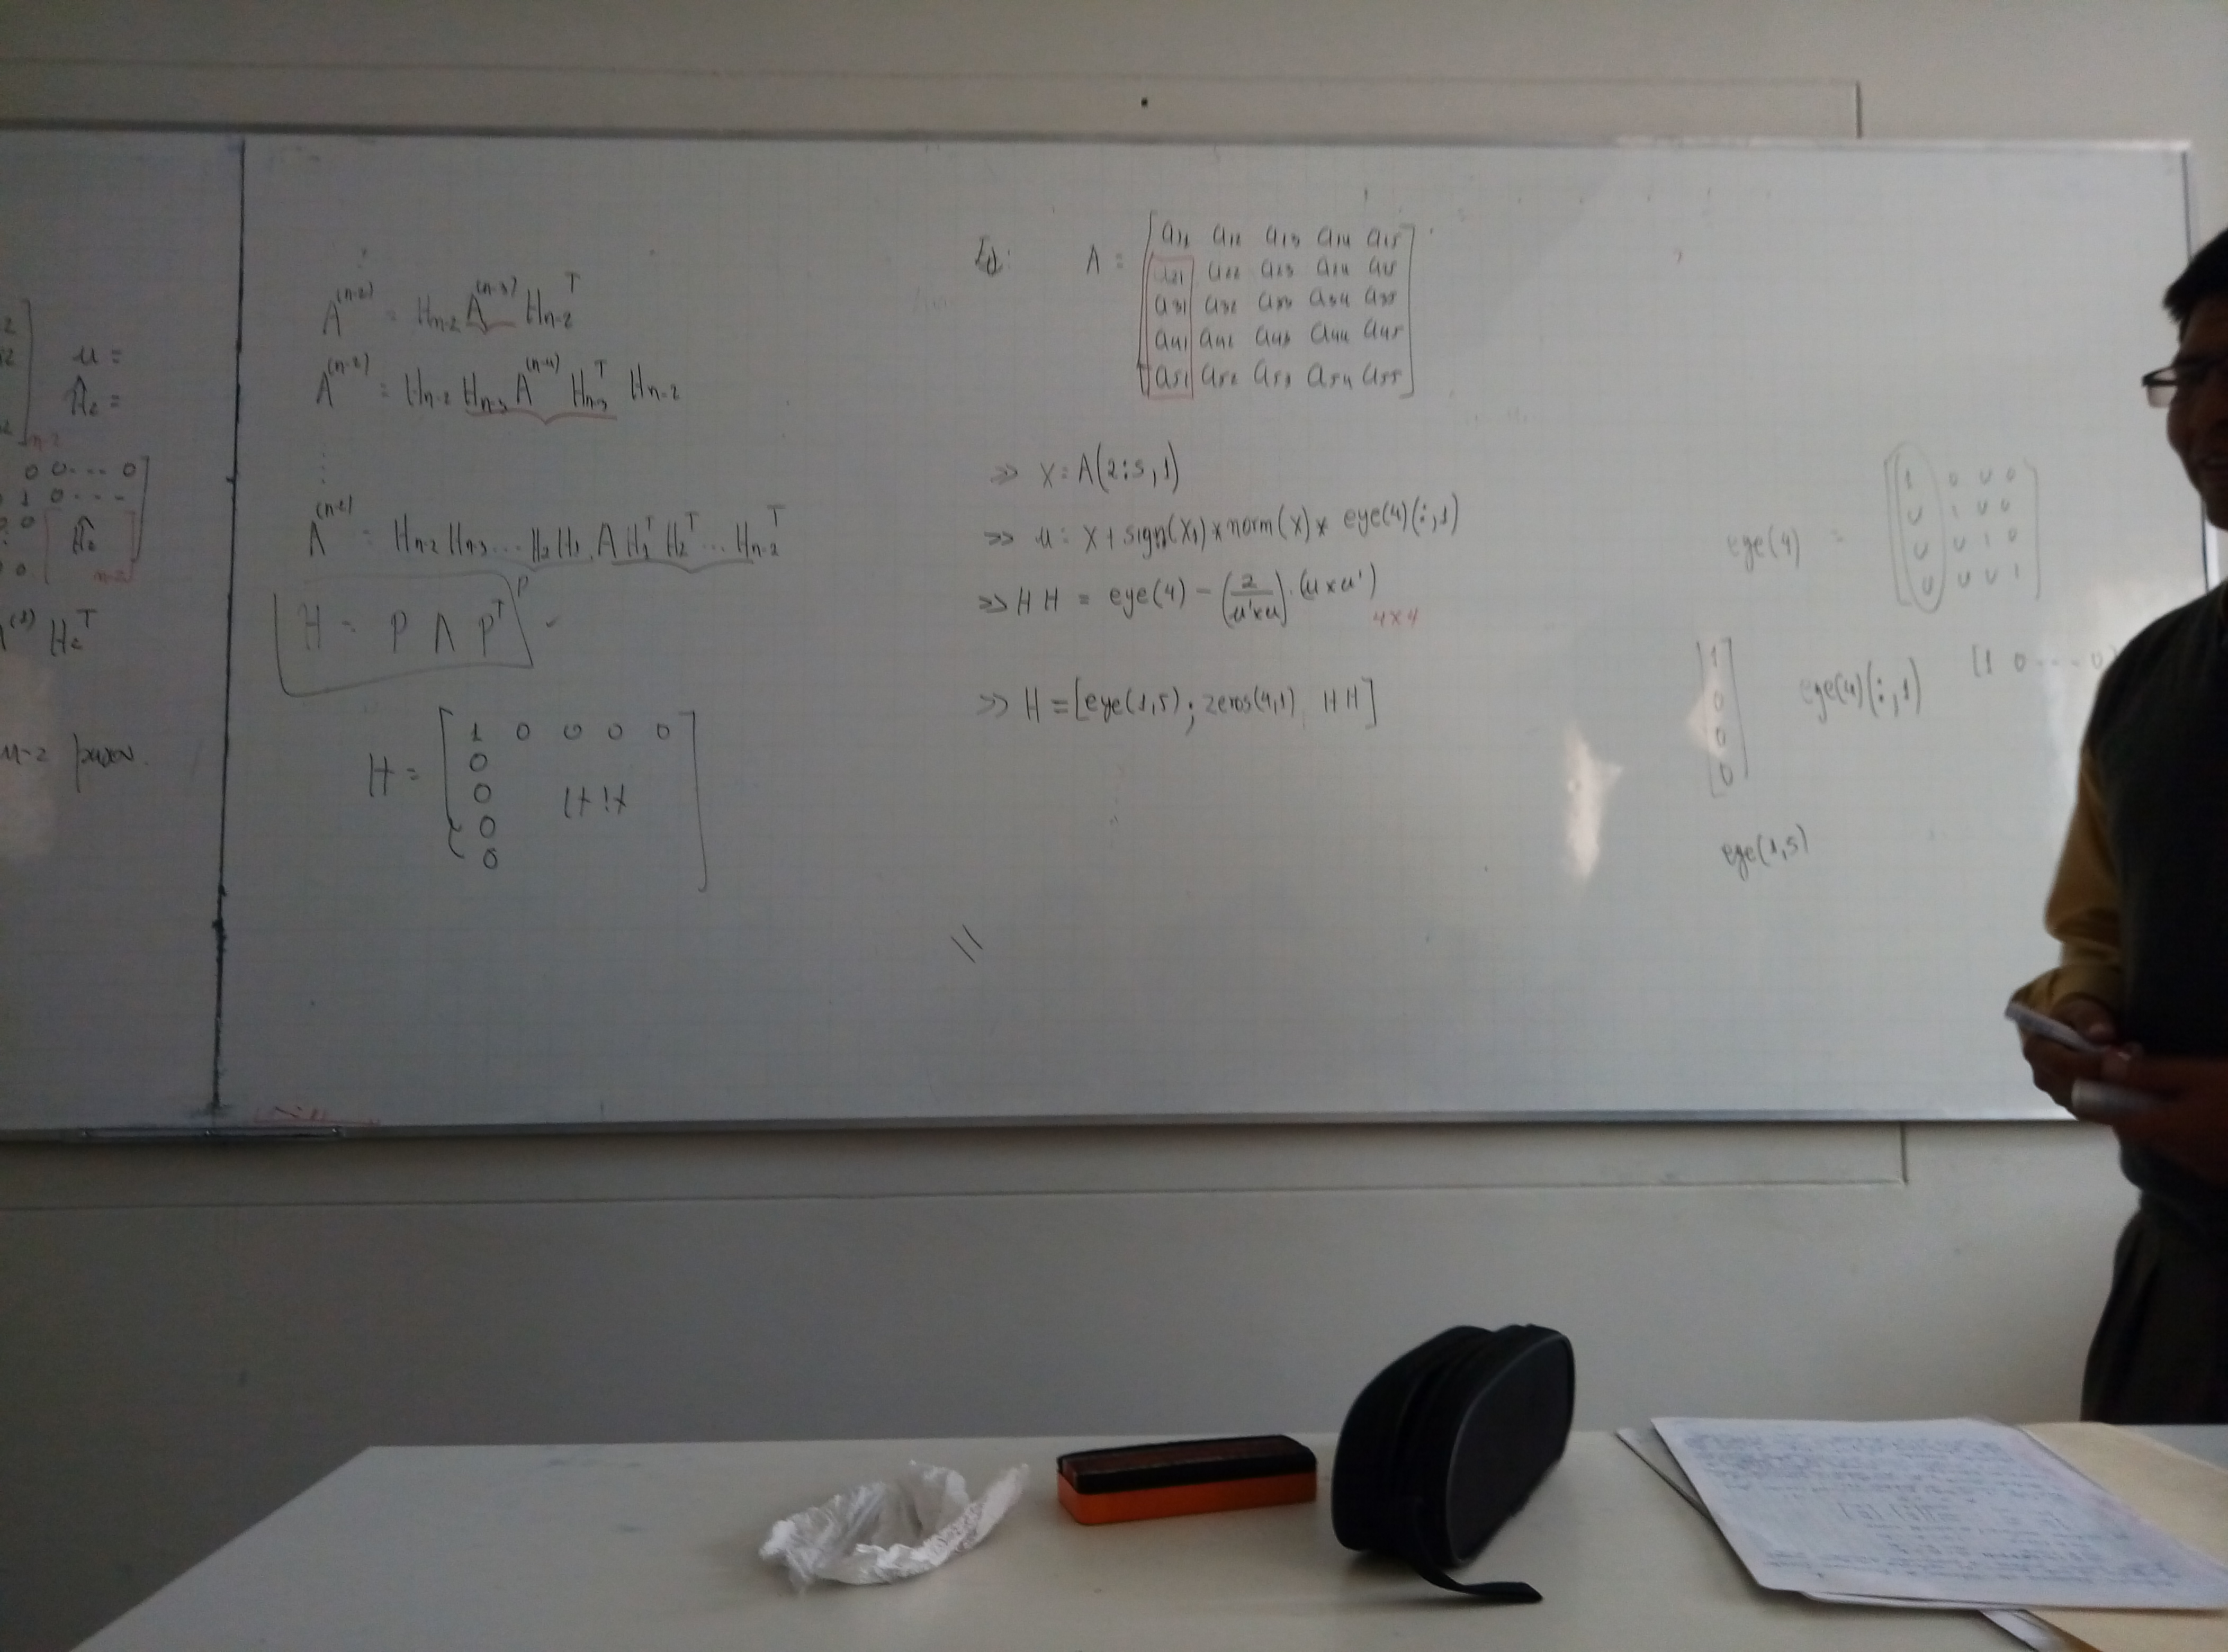 u =
Ĥ₂ =
n-2
0 0 ... 0
1 0 ...
0 Ĥ₂
0 n-2
H₂ᵀ
n-2 pasos.
A⁽ⁿ⁻²⁾ = Hn-2 A⁽ⁿ⁻³⁾ Hn-2ᵀ
A⁽ⁿ⁻²⁾ = Hn-2 Hn-3 A⁽ⁿ⁻⁴⁾ Hn-3ᵀ Hn-2
⋮
A⁽ⁿ⁻²⁾ = Hn-2 Hn-3 ... H₂ H₁ A H₁ᵀ H₂ᵀ ... Hn-2ᵀ
P
H = P Λ Pᵀ
H = [ 1 0 0 0 0
0
0 HH
0
0 ]
Ej: A = [ a11 a12 a13 a14 a15
a21 a22 a23 a24 a25
a31 a32 a33 a34 a35
a41 a42 a43 a44 a45
a51 a52 a53 a54 a55 ]
>> x = A(2:5,1)
>> u = x + sign(x₁) * norm(x) * eye(4)(:,1)
>> HH = eye(4) - (2 / u'*u) · (u * u')
4×4
>> H = [eye(1,5); zeros(4,1) HH]
eye(4) = [ 1 0 0 0
0 1 0 0
0 0 1 0
0 0 0 1 ]
[ 1
0
0
0 ]
eye(4)(:,1) [1 0 ... 0
eye(1,5)